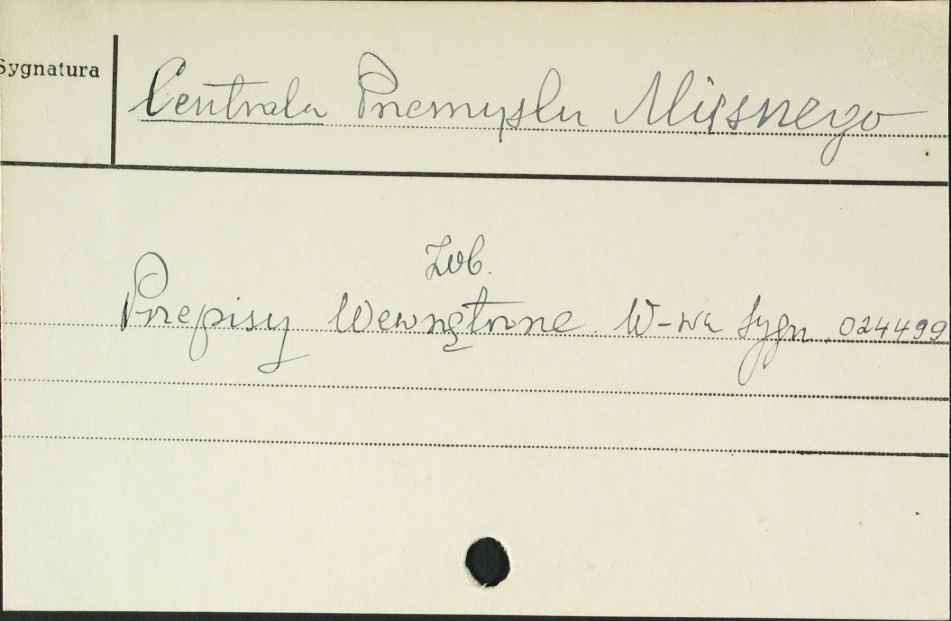 Sygnatura
Centrala Przemysłu Mięsnego
Zob.
Przepisy Wewnętrzne. W-wa Sygn. 024499